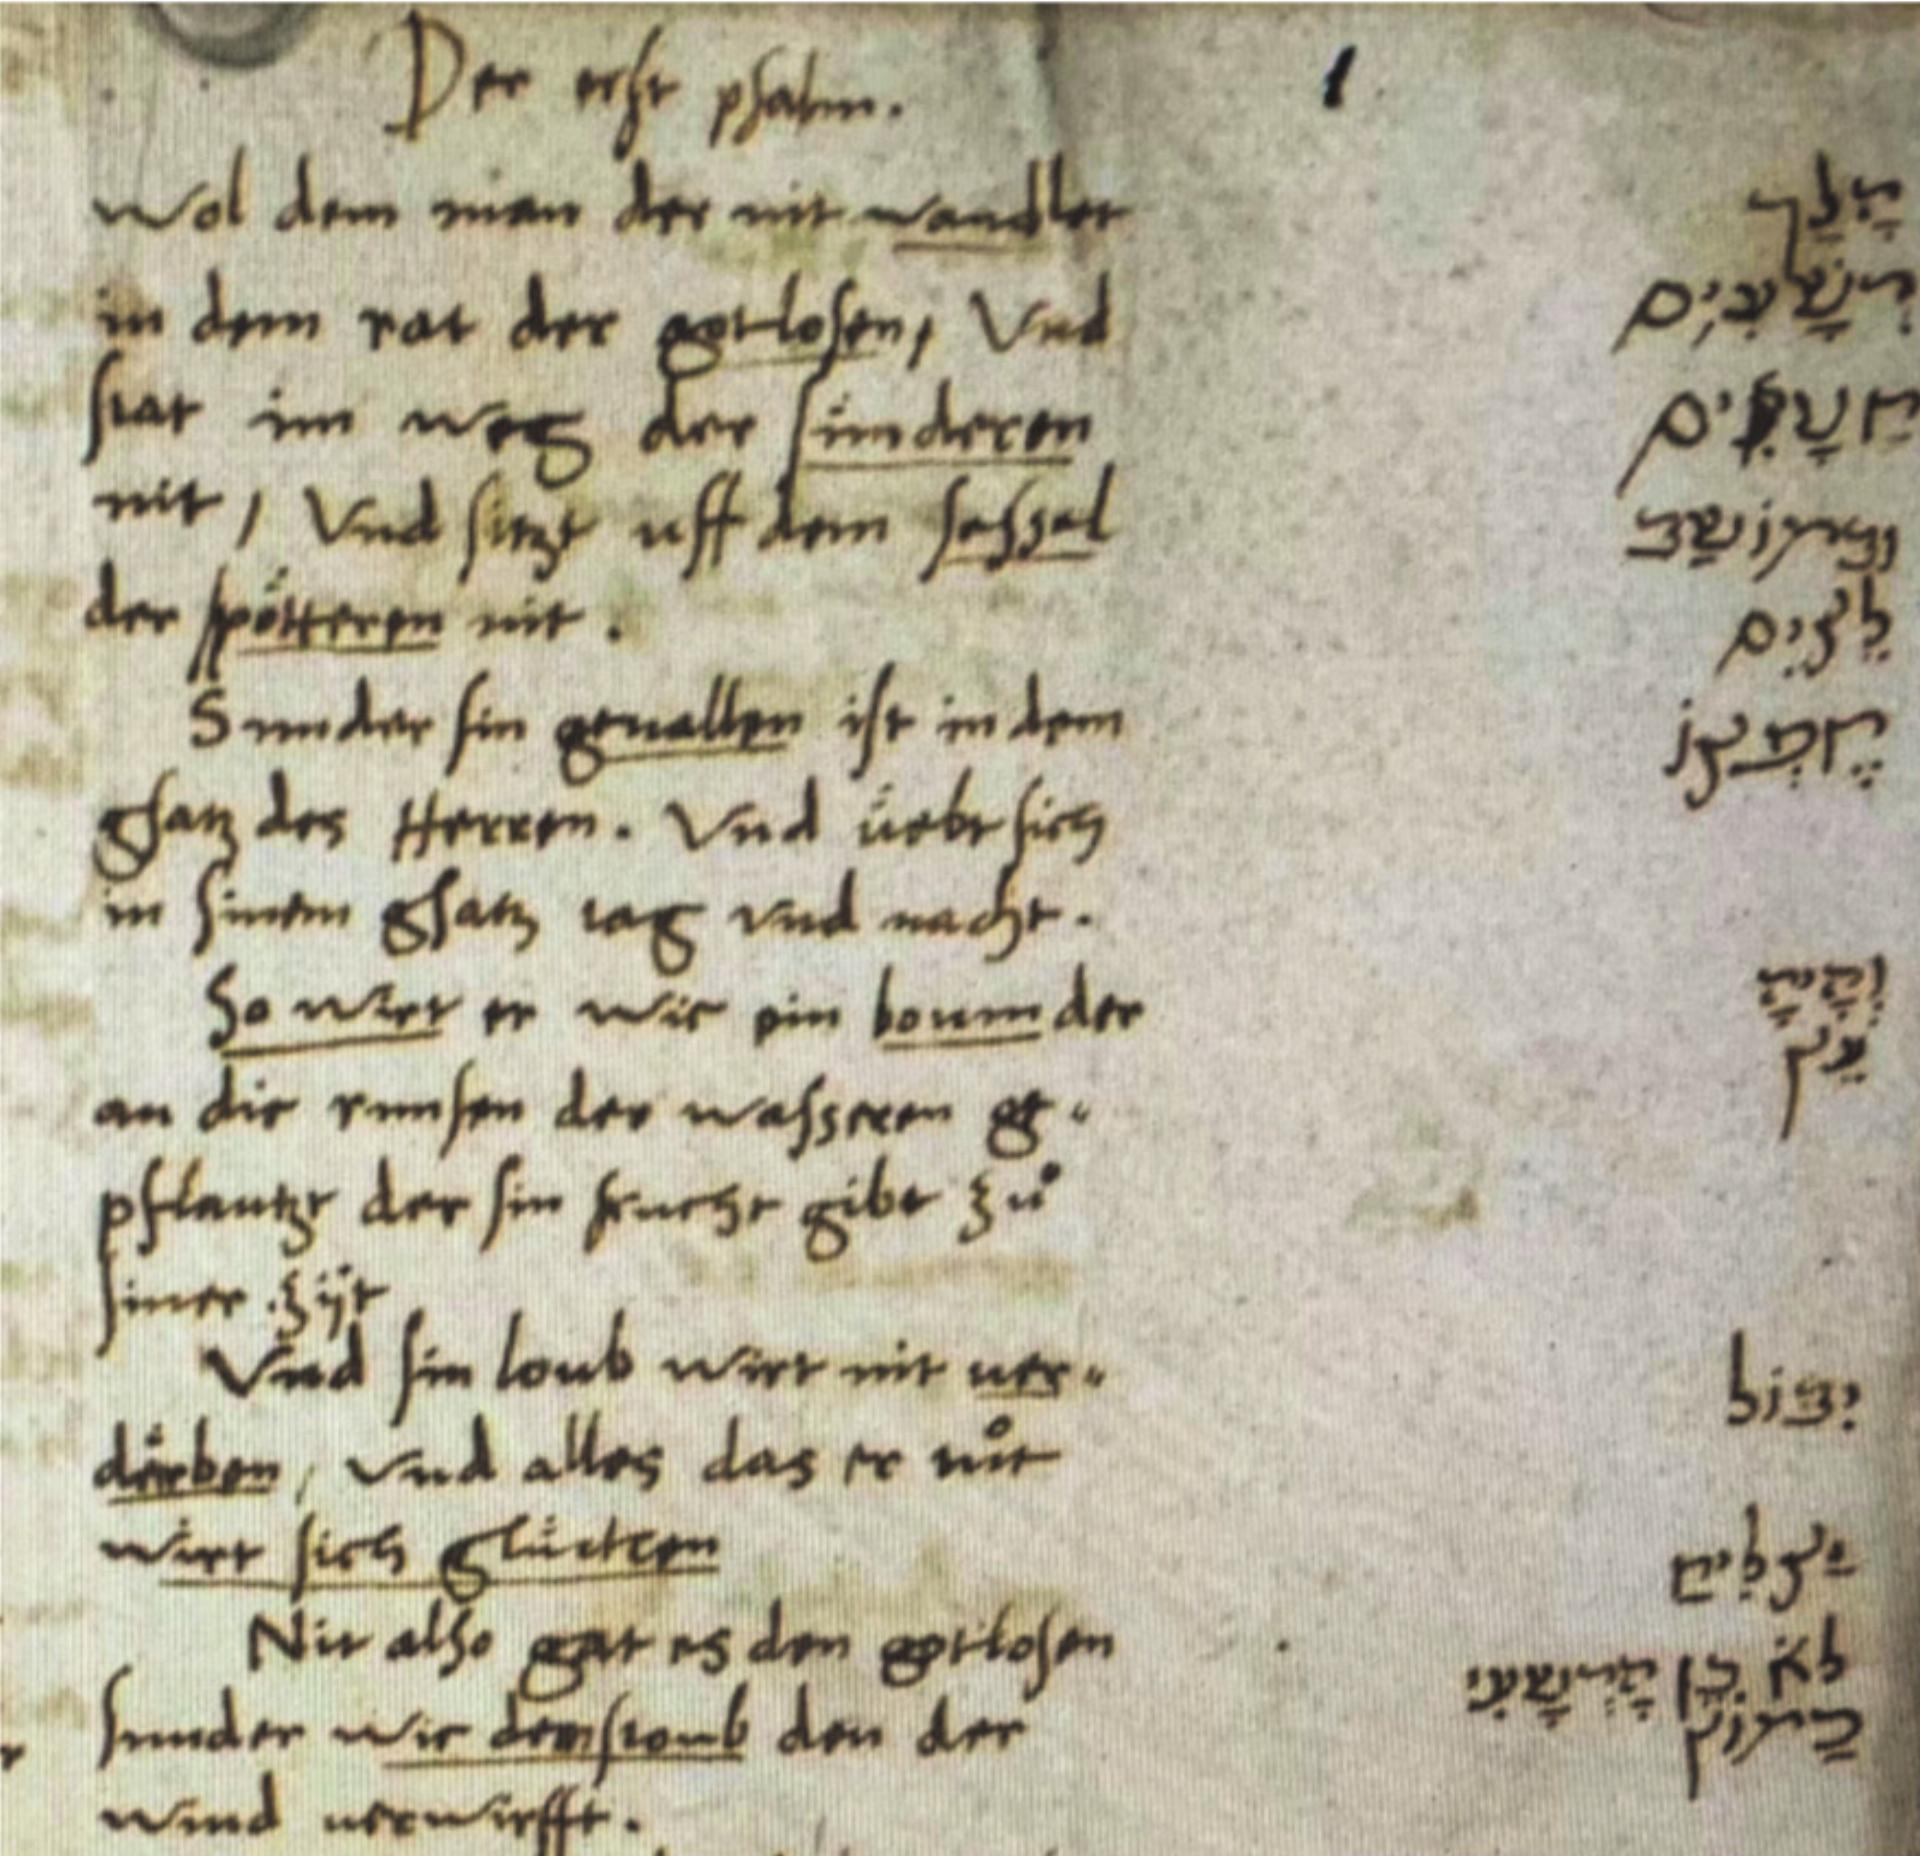 Der erst psalm.
1
Wol dem man der nit wandlet
הָלַך
in dem rat der gotlosen, Vnd
רְשָׁעִים
stat im weg der sünderen
חַטָּאִים
nit, Vnd sitzt uff dem sesszel
der spötteren nit.
לֵצִים
Sunder sin geuallen ist in dem
חֶפְצוֹ
gsatz des Herren. Vnd üebt sich
in sinem gsatz tag vnd nacht.
So wirt er wie ein boum der
וְהָיָה
עֵץ
an die runsen der wasseren ge-
pflantzt der sin frucht gibt zů
siner zijt
Vnd sin loub wirt nit uer-
יִבּוֹל
derben, Vnd alles das er tůt
wirt sich glücken
יַצְלִיחַ
Nit also gat es den gotlosen
לֹא כֵן הָרְשָׁעִי
sunder wie dem stoub den der
כַּמוֹץ
wind uerwirfft.